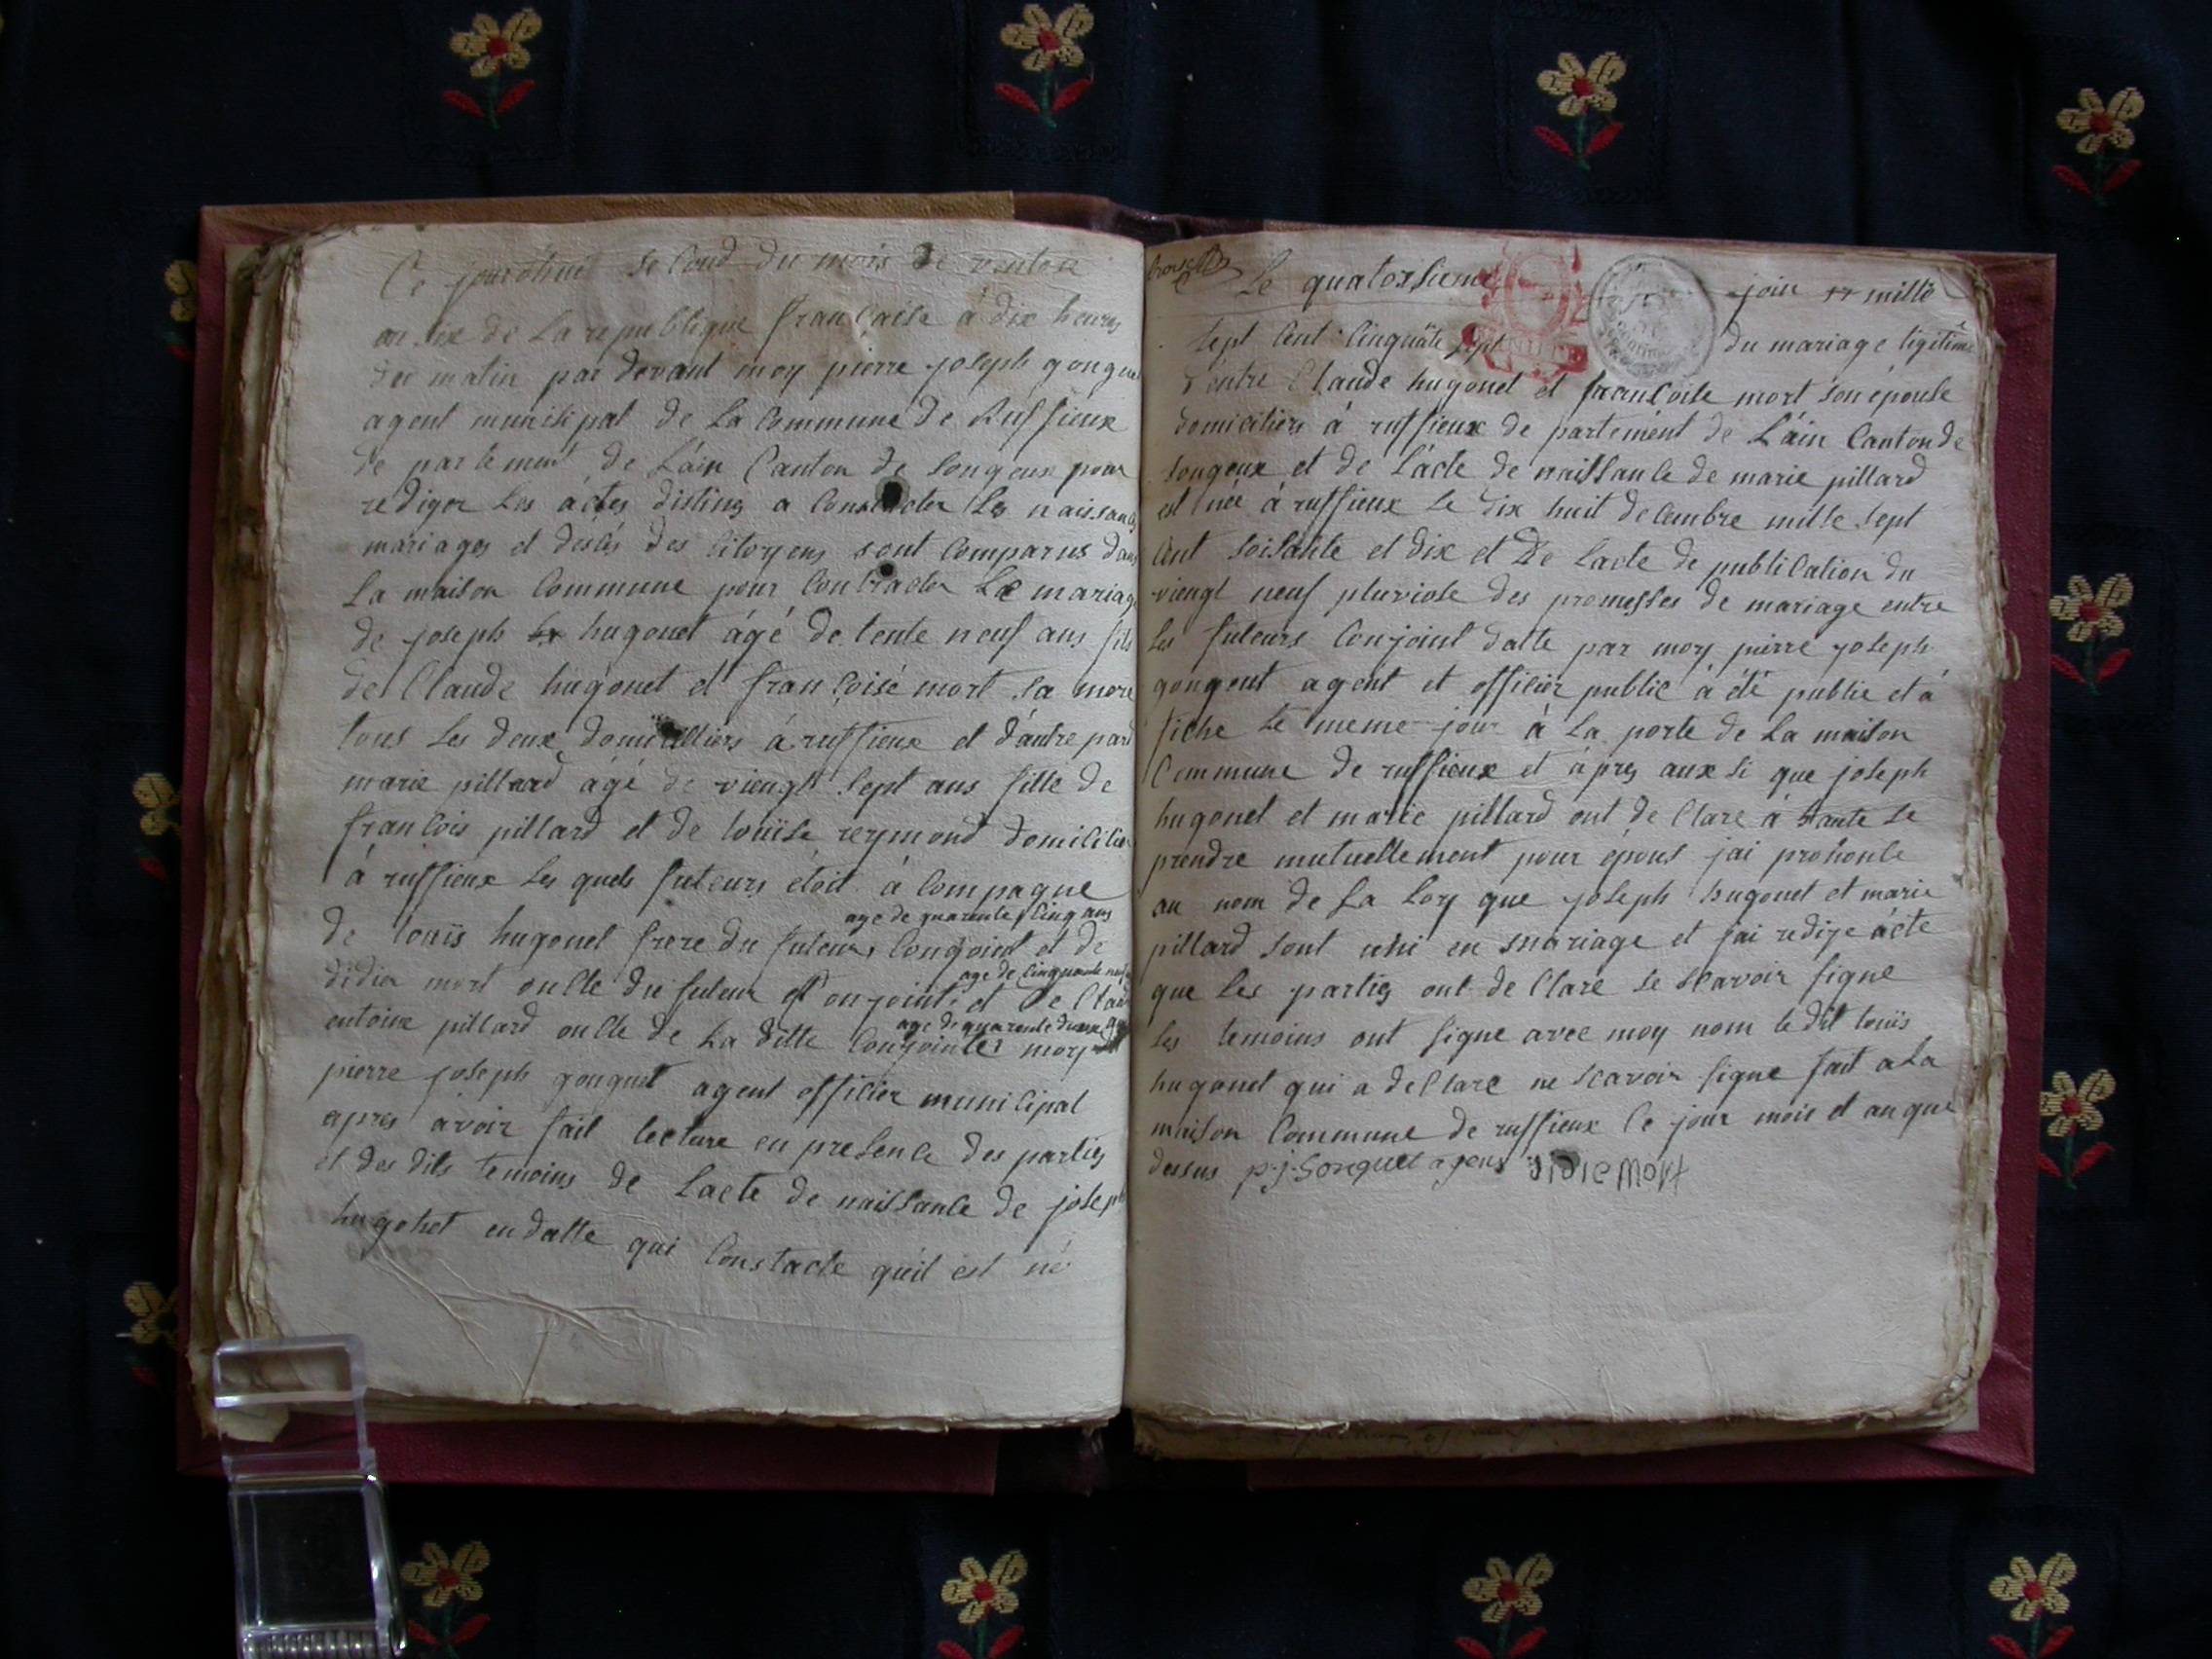 Ce jourdhuit second du mois de ventose
an six de la republique francaise à dix heures
du matin par devant moy pierre joseph gonguet
agent municipal de la Commune de Ruffieux
de partement de Láin Canton de Songeux pour
rediger les áctes distins a Constacter les naissances
mariages et desés des citoyens sont Comparus dans
La maison Commune pour Contracter Le mariage
de joseph hugonet ágé de tente neuf ans fils
de Claude hugonet et francoise mort sa mere
tous les deux domicilliers á ruffieux et d'autre part
marie pillard ágé de viengt sept ans fille de
francois pillard et de louïse reymond domicilier
á ruffieux les quels futeurs étoit á Compagne
age de quarente cinq ans
de louïs hugonet frere du futeur Conjoint et de
age de cinquante neuf
didier mort oncle du futeur Conjoint et de
age de quarente deux
entoine pillard oncle de La ditte Conjointe moy
pierre joseph gonguet agent officier municipal
apres ávoir fait lecture en presence des parties
et des dits temoins de Lacte de naissance de joseph
hugonet en datte qui Constacte qúil est né
Le quatorsieme join mille
sept Cent Cinquäte sept du mariage ligitime
d'entre Claude hugonet et francoise mort son épouse
domiciliers à ruffieux de partement de L'áin Canton de
songeux et de L'ácte de naissance de marie pillard
est née à ruffieux Le dix huit decembre mille sept
Cent soisante et dix et De Lacte de publication du
viengt neuf pluviose des promesses de mariage entre
Les futeurs Conjoint datte par moy pierre joseph
gonguet agent et officier public á été publie et á
fiche Le meme jour à La porte de La maison
Commune de ruffieux et ápres aux si que joseph
hugonet et marie pillard ont de Clare á haute se
prendre mutuellement pour épous jai prononce
au nom de La Loy que joseph hugonet et marie
pillard sont uni en mariage et jai redige ácte
que Les parties ont de Clare se scavoir signe
Les temoins ont signe avec moy nom le dit louïs
hugonet qui a de Clare ne scavoir signe fait a La
maison Commune de ruffieux Ce jour mois et an que
dessus p.j. Gonguet agent didie Mort